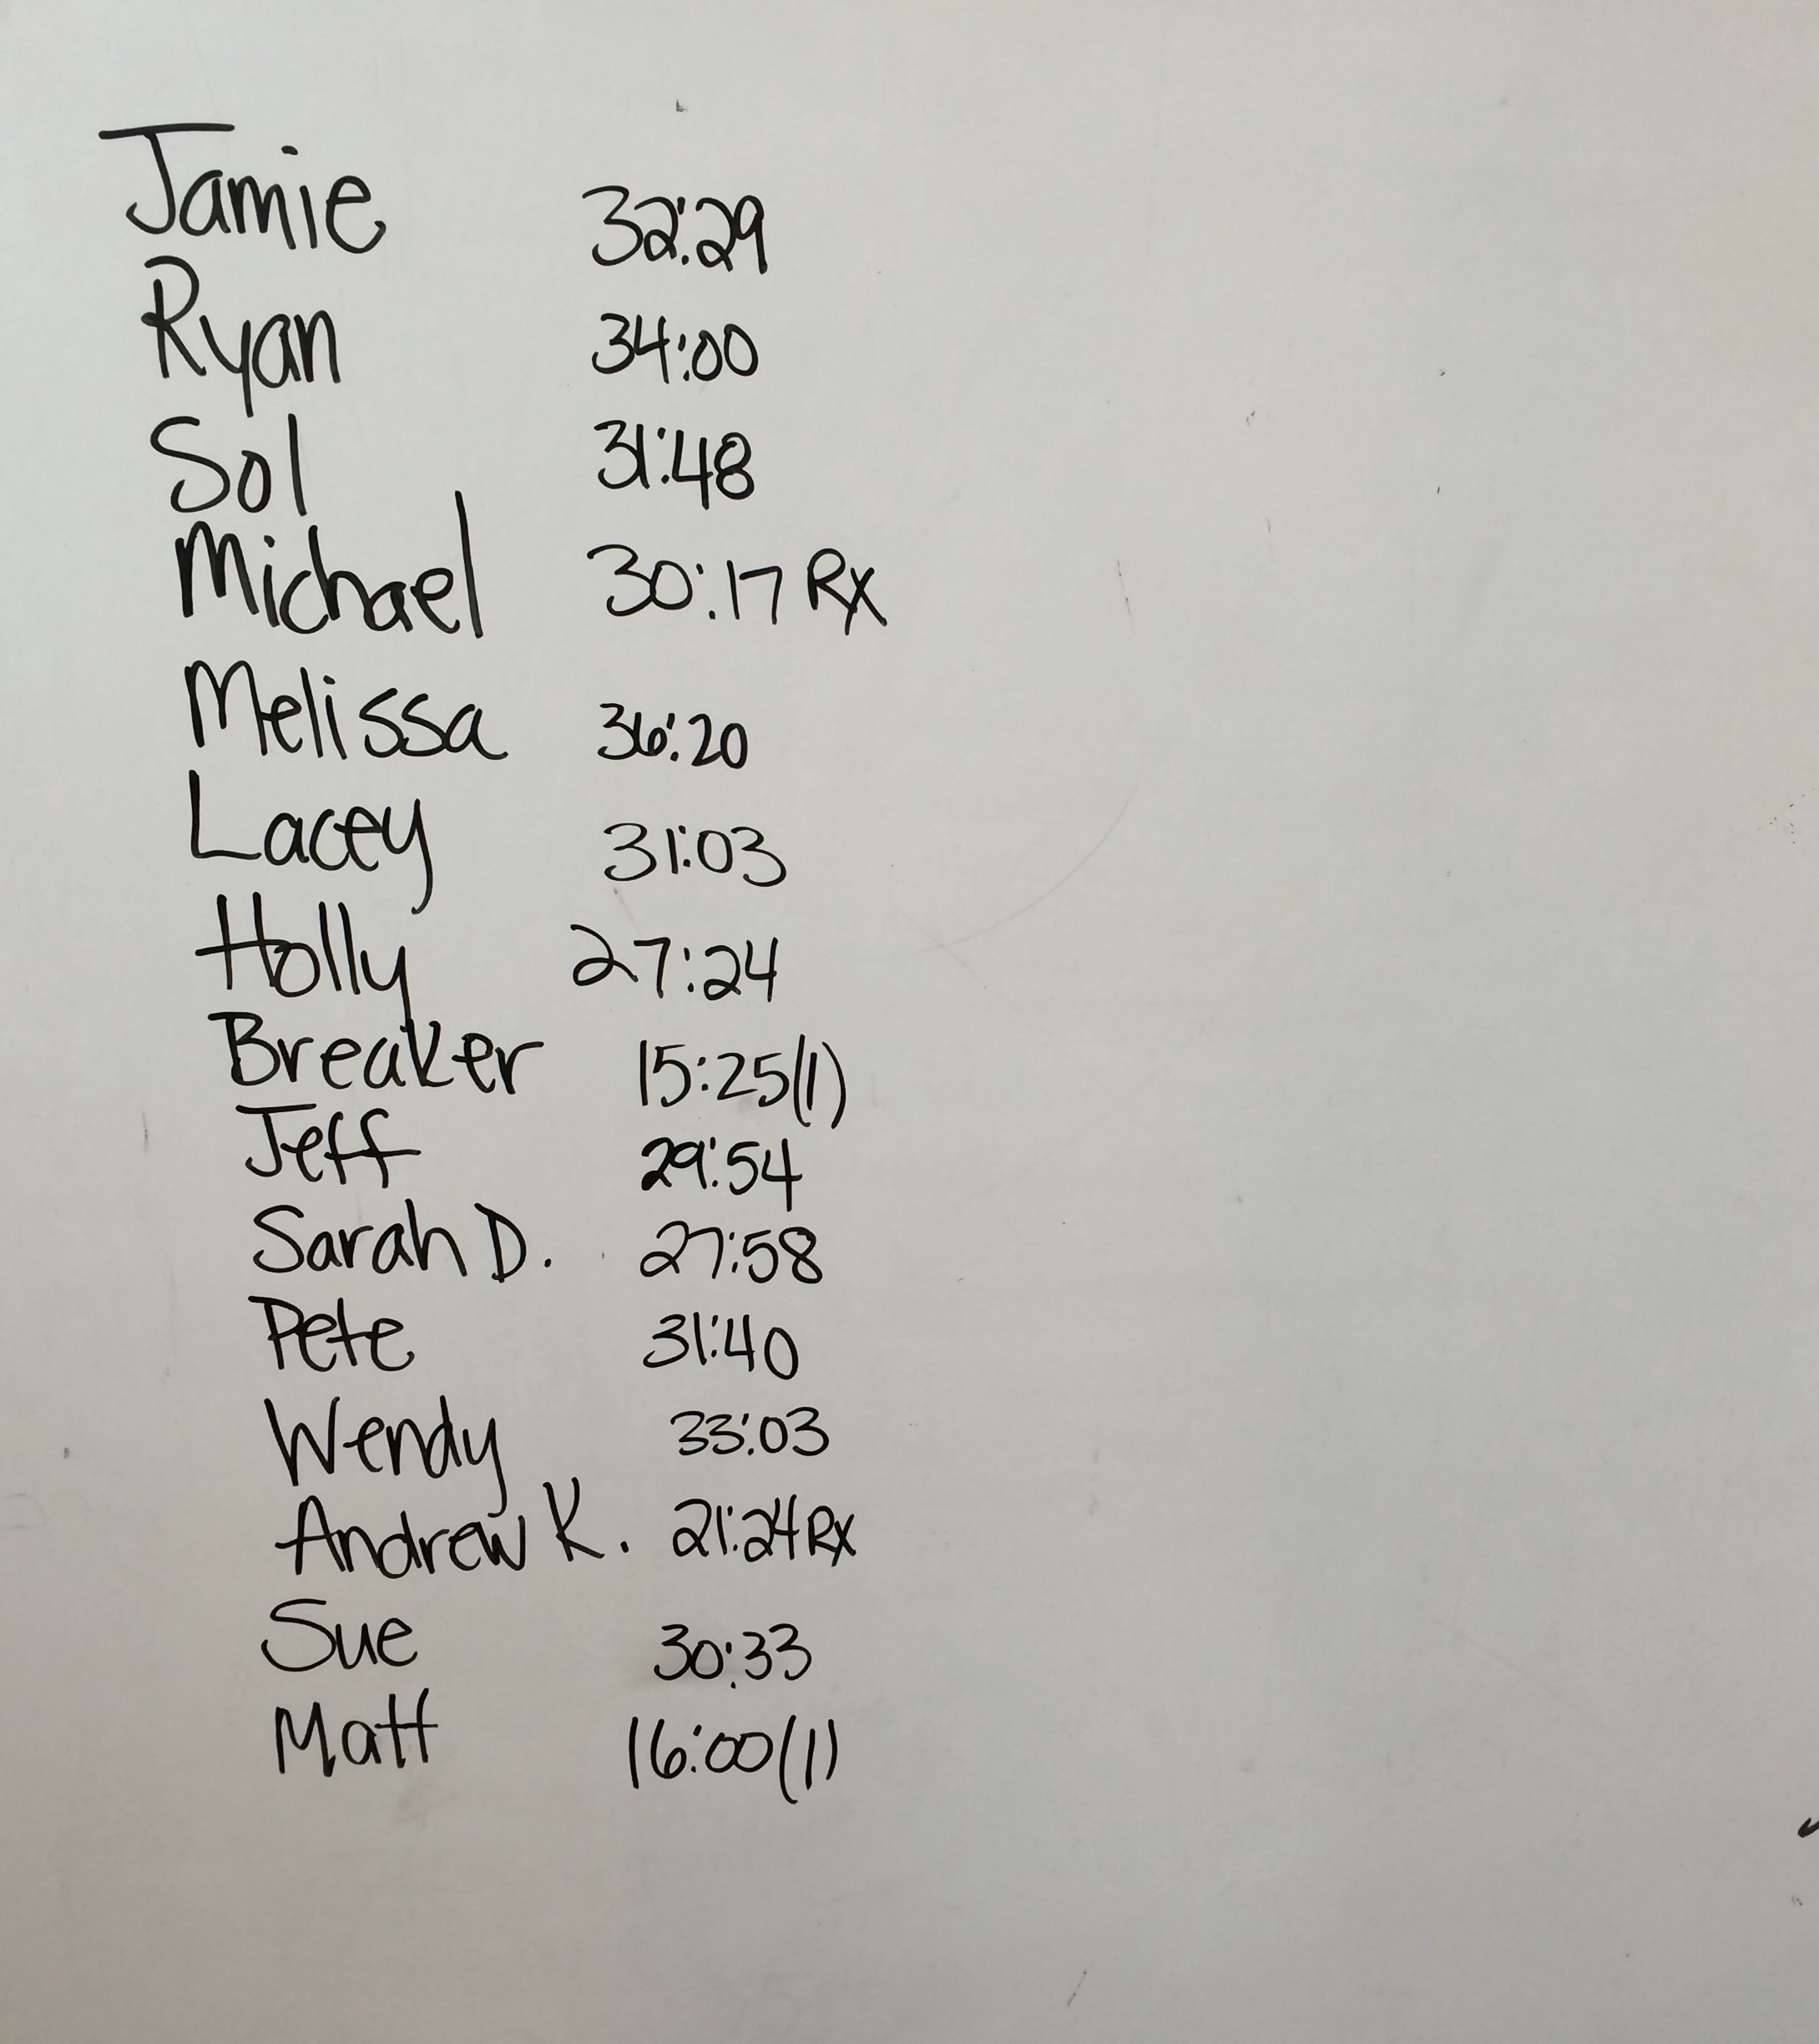 Jamie 32:29
Ryan 34:00
Sol 31:48
Michael 30:17 Rx
Melissa 36:20
Lacey 31:03
Holly 27:24
Breaker 15:25(1)
Jeff 29:54
Sarah D. 27:58
Pete 31:40
Wendy 33:03
Andrew K. 21:24 Rx
Sue 30:33
Matt 16:00(1)